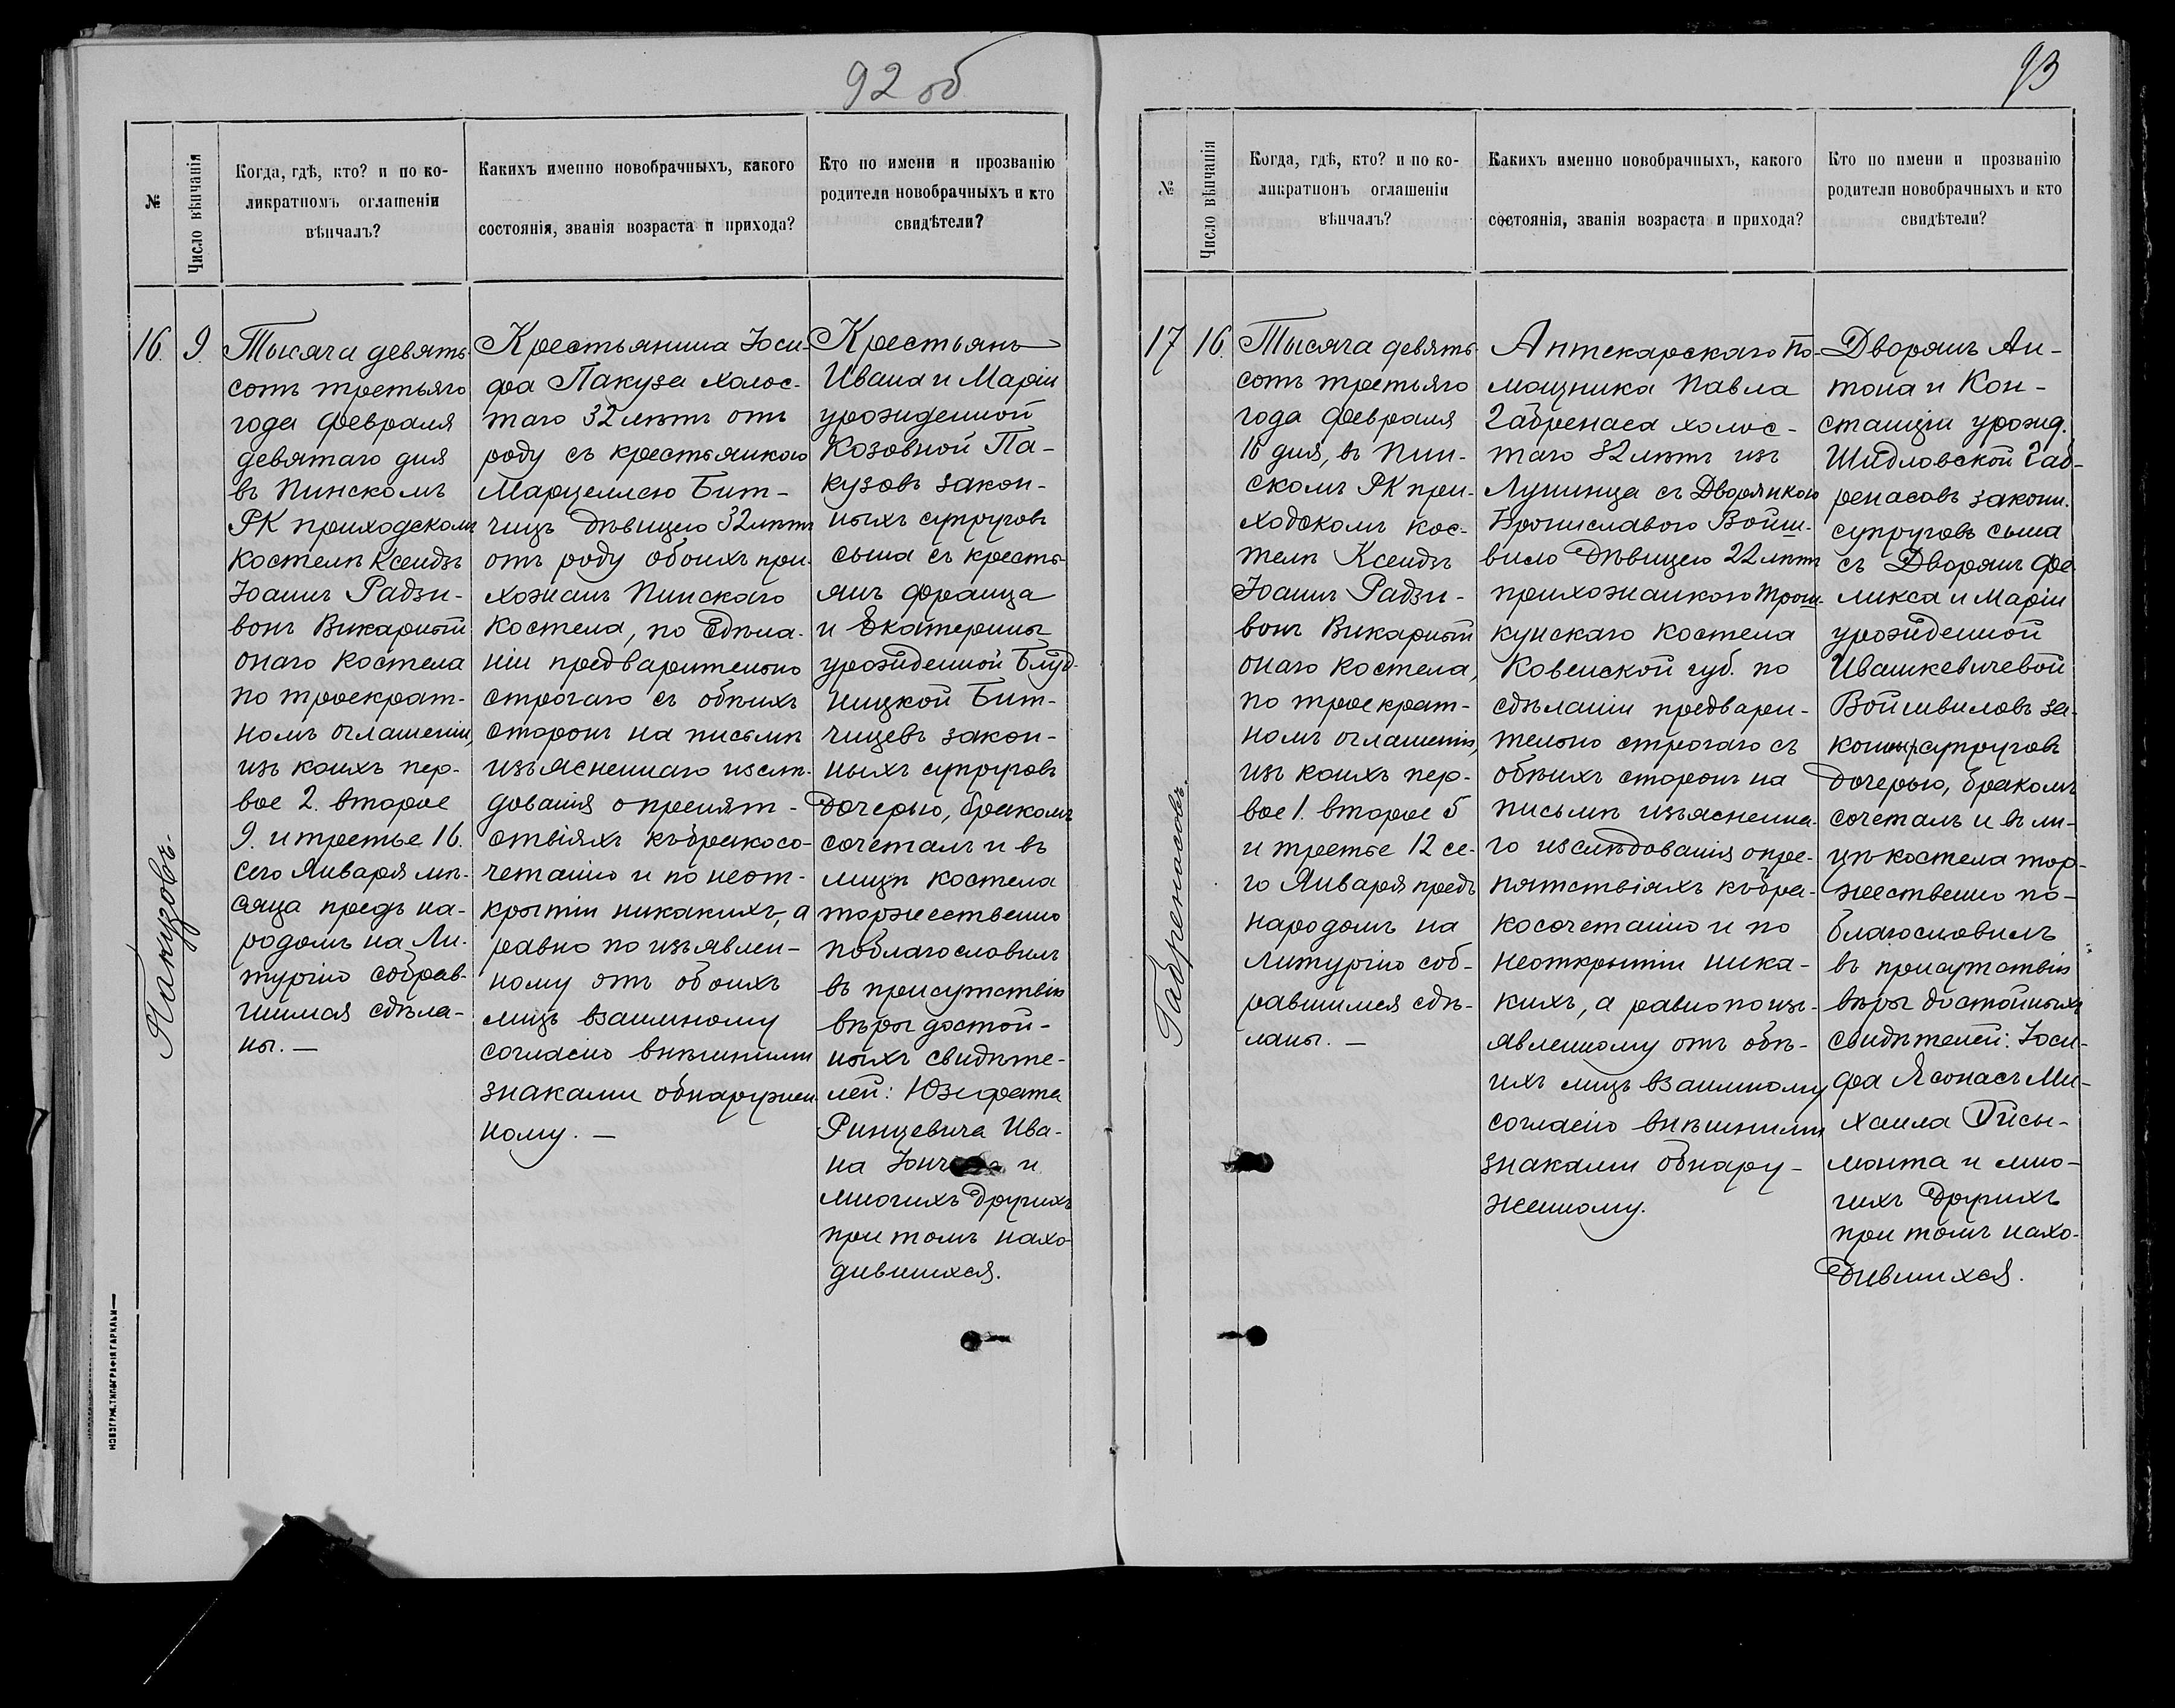 92 об
№
Число вѣнчанія
Когда, гдѣ, кто? и по ко-
ликратномъ оглашеніи
вѣнчалъ?
Какихъ именно новобрачныхъ, какого
состоянія, званія возраста и прихода?
Кто по имени и прозванію
родители новобрачныхъ и кто
свидѣтели?
16.
9.
Пакузовъ.
Тысяча девять-
сотъ третьяго
года Февраля
девятаго дня
въ Пинскомъ
РК приходскомъ
костелѣ Ксендзъ
Іоаннъ Радзи-
вонъ Викарный
онаго костела
по троекрат-
номъ оглашеніи,
изъ коихъ пер-
вое 2. второе
9. и третье 16.
сего Января мѣ-
сяца предъ на-
родомъ на Ли-
тургію собрав-
шимся сдѣла-
ны. —
Крестьянина Іоси-
фа Пакуза холос-
таго 32 лѣтъ отъ
роду съ крестьянкою
Марцеллею Бит-
чицъ дѣвицею 32 лѣтъ
отъ роду обоихъ при-
хожанъ Пинскаго
костела, по сдѣла-
ніи предварительно
строгаго съ обѣихъ
сторонъ на письмѣ
изъясненнаго изслѣ-
дованія о препят-
ствіяхъ къ бракосо-
четанію и по неот-
крытіи никакихъ, а
равно по изъявлен-
ному отъ обоихъ
лицъ взаимному
согласію внѣшними
знаками обнаружен-
ному. —
Крестьянъ
Ивана и Маріи
урожденной
Козовной Па-
кузовъ закон-
ныхъ супруговъ
сына съ кресть-
янъ Франца
и Екатерины
урожденной Блуд-
ницкой Бит-
чицевъ закон-
ныхъ супруговъ
дочерью, бракомъ
сочеталъ и въ
лицѣ костела
торжественно
поблагословилъ
въ присутствіи
вѣры достой-
ныхъ свидѣте-
лей: Юзефата
Ринцевича Ива-
на и
многихъ другихъ
при томъ нахо-
дившихся.
НОВОГРУД. ТИПОГРАФІЯ ГАРКАВИ—
93
№
Число вѣнчанія
Когда, гдѣ, кто? и по ко-
ликратномъ оглашеніи
вѣнчалъ?
Какихъ именно новобрачныхъ, какого
состоянія, званія возраста и прихода?
Кто по имени и прозванію
родители новобрачныхъ и кто
свидѣтели?
17
16.
Габренасовъ.
Тысяча девять-
сотъ третьяго
года Февраля
16 дня, въ Пин-
скомъ РК при-
ходскомъ кос-
телѣ Ксендзъ
Іоаннъ Радзи-
вонъ Викарный
онаго костела,
по троекрат-
номъ оглашеніи,
изъ коихъ пер-
вое 1. второе 5
и третье 12 се-
го Января предъ
народомъ на
Литургію соб-
равшимся сдѣ-
ланы. —
Аптекарскаго по-
мощника Павла
Габренаса холос-
таго 32 лѣтъ изъ
Лунинца съ Дворянкою
Брониславою Войш-
вило дѣвицею 22 лѣтъ
прихожанкою Трош-
кунскаго костела
Ковенской губ. по
сдѣланіи предвари-
тельно строгаго съ
обѣихъ сторонъ на
письмѣ изъясненна-
го изслѣдованія о пре-
пятствіяхъ къ бра-
косочетанію и по
неоткрытіи ника-
кихъ, а равно по изъ-
явленному отъ обѣ-
ихъ лицъ взаимному
согласію внѣшними
знаками обнару-
женному.
Дворянъ Ан-
тона и Кон-
станціи урожд.
Шидловской Габ-
ренасовъ законн.
супруговъ сына
съ Дворянъ Фе-
ликса и Маріи
урожденной
Ивашкевичевой
Войшвиловъ за-
конныхъ супруговъ
дочерью, бракомъ
сочеталъ и въ ли-
цѣ костела тор-
жественно по-
благословилъ
въ присутствіи
вѣры достойныхъ
свидѣтелей: Іоси-
фа Ясонасъ Ми-
хаила
и мно-
гихъ другихъ
при томъ нахо-
дившихся.